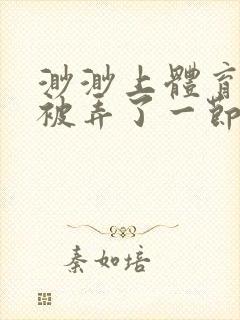 渺渺上體育
被弄了一節
秦如培